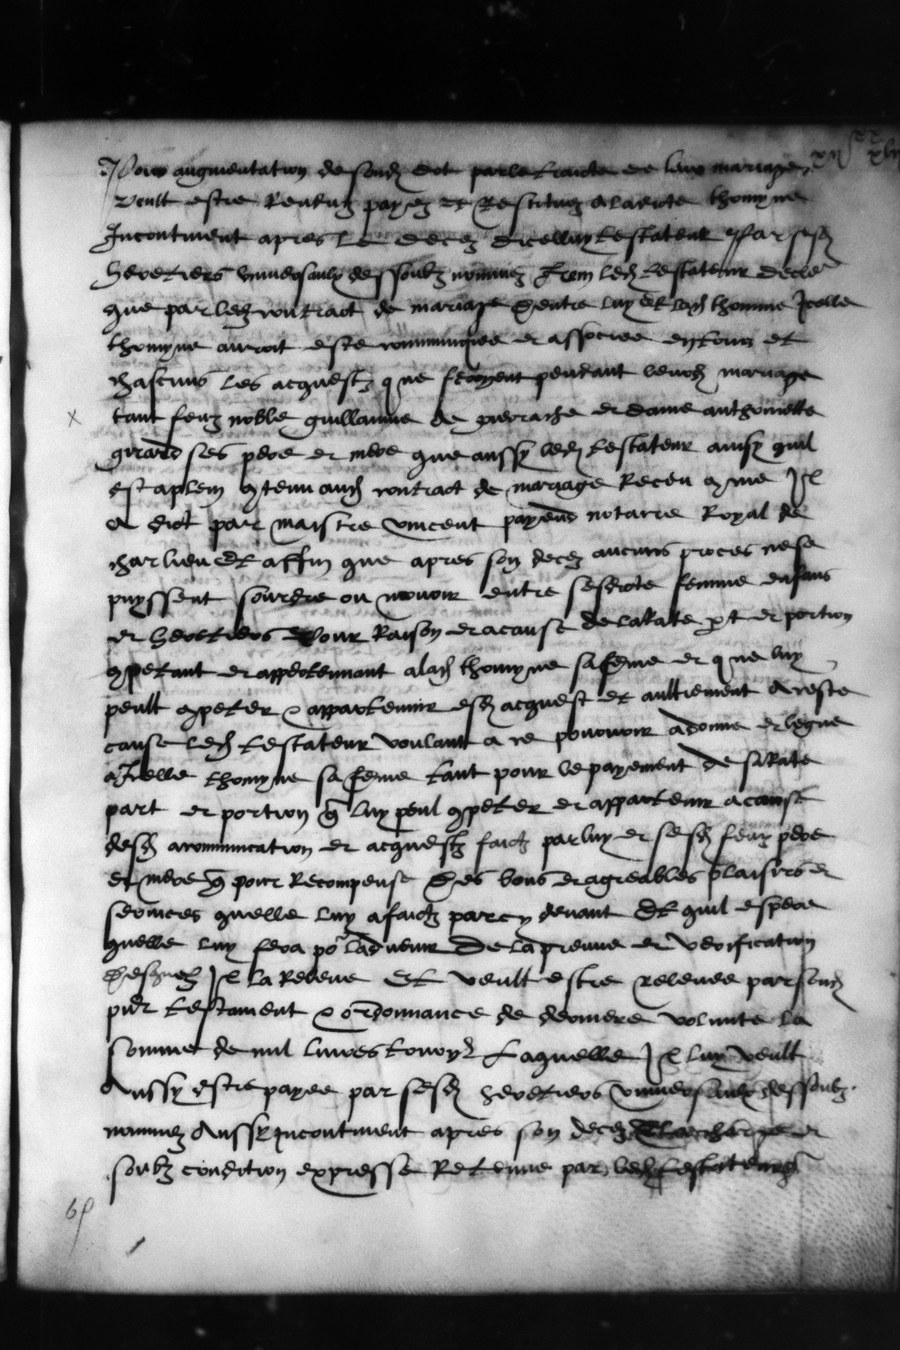 Pour augmentation de sond dot par le traicte de leur mariage
veult estre renduz payez et restituez a ladicte thomyne
Incontinent apres le decez dicelluy testateur par sesd
heretiers universaulx dessoubz nommez Item led testateur declere
que par led contract de mariage dentre luy et lad thomine Icelle
thomyne auroit este communiquee et associee en tous et
chascuns les acquestz que feroyent pendant leurd mariage
tant feuz noble guillaume de et dame anthoinette
girard ses pere et mere que aussy led testateur ainsy quil
est aplein contenu aud contract de mariage receu comme Il
a dict par maistre vincent payend notaire Royal de
charlieu Et affin que apres son decez aucuns proces ne se
puyssent sourdre ou mouvoir entre sesdicte femme enfans
et heretiers pour Raison et a cause de la Rate part et portion
competant et appertenant a lad thomyne sa feme et que luy
peult competer et appartenir esd acquest et aultrement a ceste
cause led testateur voulant a ce pourvoir a donne et legue
a Icelle thomyne sa feme tant pour le payement de sa Rate
part et portion que luy peul competer et appartenir a cause
desd acomunication et acquestz faictz par luy et sesd feuz pere
et mere que pour Recompense des bons et agreables plaisirs et
services quelle luy a faictz par cy devant Et quil espere
quelle luy fera pour ladvenir De la preuve et verification
desquelz Il la Releve Et veult estre relevee par sond
pnt testament et ordonnance de derniere volunte la
somme de mil livres tournoys Laquelle Il luy veult
Aussy estre payee par sesd heretiers universaulx dessoubz
nommez Aussy incontinent apres son decez et
soubz condition expresse Retenue par led testateur